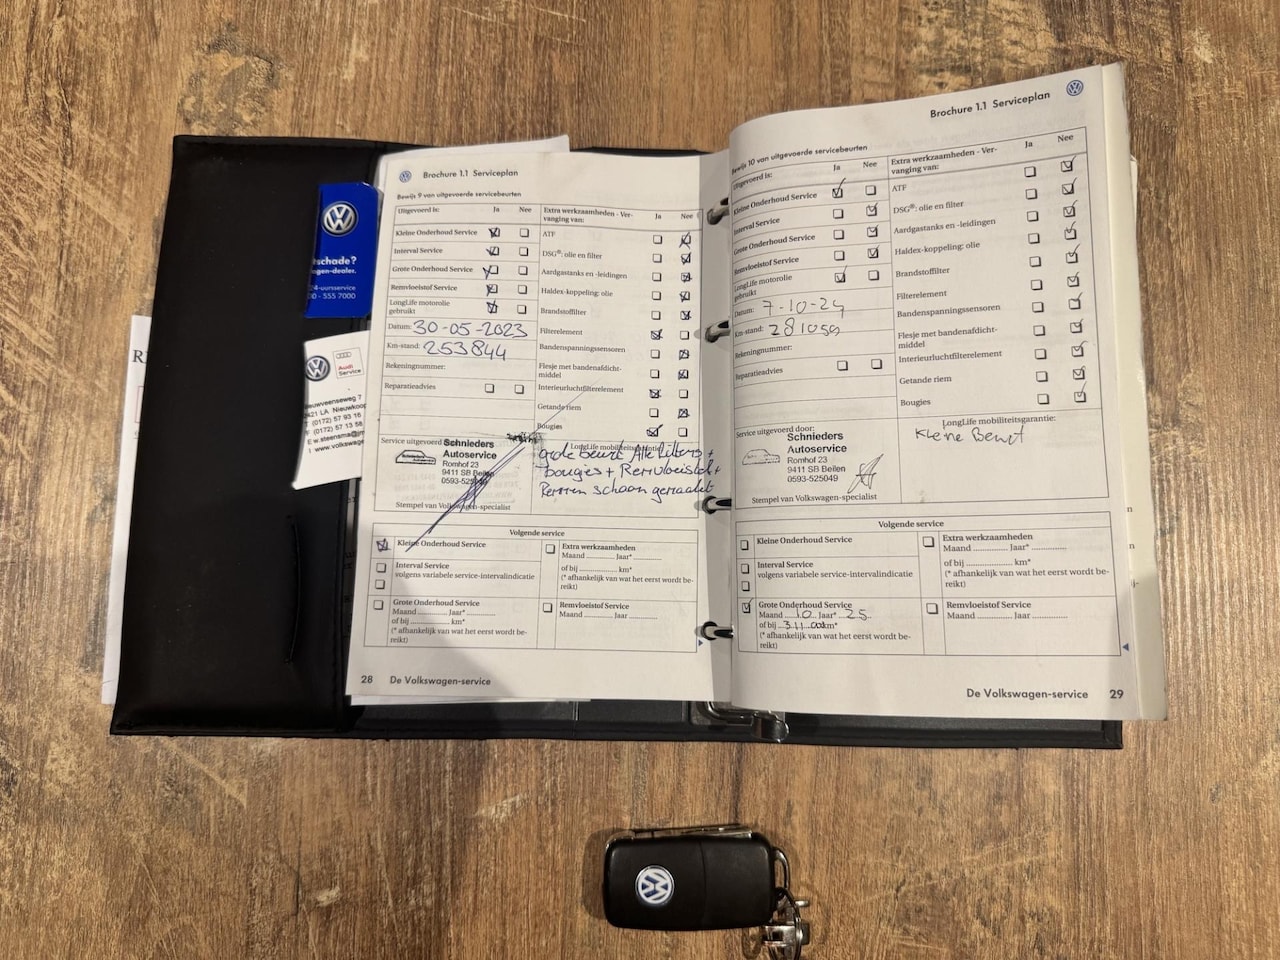 Brochure 1.1 Serviceplan
Bewijs 9 van uitgevoerde servicebeurten
Uitgevoerd is:
Ja
Nee
Extra werkzaamheden - Ver-
vanging van:
Ja
Nee
Kleine Onderhoud Service
Interval Service
Grote Onderhoud Service
Remvloeistof Service
LongLife motorolie
gebruikt
Datum: 30-05-2023
Km-stand: 253844
Rekeningnummer:
Reparatieadvies
ATF
DSG®: olie en filter
Aardgastanks en -leidingen
Haldex-koppeling: olie
Brandstoffilter
Filterelement
Bandenspanningssensoren
Flesje met bandenafdicht-
middel
Interieurluchtfilterelement
Getande riem
Bougies
Service uitgevoerd
Schnieders
Autoservice
Romhof 23
9411 SB Beilen
0593-525049
Stempel van Volkswagen-specialist
LongLife mobiliteitsgarantie:
grote beurt Alle filters +
bougies + Remvloeistof +
Remmen schoon gemaakt
Volgende service
Kleine Onderhoud Service
Interval Service
volgens variabele service-intervalindicatie
Grote Onderhoud Service
Maand ............. Jaar* .............
of bij ............. km*
(* afhankelijk van wat het eerst wordt be-
reikt)
Extra werkzaamheden
Maand ............. Jaar* .............
of bij ............. km*
(* afhankelijk van wat het eerst wordt be-
reikt)
Remvloeistof Service
Maand ............. Jaar .............
28 De Volkswagen-service
Brochure 1.1 Serviceplan
Bewijs 10 van uitgevoerde servicebeurten
Uitgevoerd is:
Ja
Nee
Extra werkzaamheden - Ver-
vanging van:
Ja
Nee
Kleine Onderhoud Service
Interval Service
Grote Onderhoud Service
Remvloeistof Service
LongLife motorolie
gebruikt
Datum: 7-10-24
Km-stand: 281059
Rekeningnummer:
Reparatieadvies
ATF
DSG®: olie en filter
Aardgastanks en -leidingen
Haldex-koppeling: olie
Brandstoffilter
Filterelement
Bandenspanningssensoren
Flesje met bandenafdicht-
middel
Interieurluchtfilterelement
Getande riem
Bougies
Service uitgevoerd door:
Schnieders
Autoservice
Romhof 23
9411 SB Beilen
0593-525049
Stempel van Volkswagen-specialist
LongLife mobiliteitsgarantie:
Kleine Beurt
Volgende service
Kleine Onderhoud Service
Interval Service
volgens variabele service-intervalindicatie
Grote Onderhoud Service
Maand 10 Jaar* 25
of bij 311.000 km*
(* afhankelijk van wat het eerst wordt be-
reikt)
Extra werkzaamheden
Maand ............. Jaar* .............
of bij ............. km*
(* afhankelijk van wat het eerst wordt be-
reikt)
Remvloeistof Service
Maand ............. Jaar .............
De Volkswagen-service 29
tschade?
gen-dealer.
24-uursservice
- 555 7000
Audi
Service
euwveenseweg 7
2421 LA Nieuwkoop
T (0172) 57 93 16
F (0172) 57 13 58
E w.steensma@
I www.volkswage